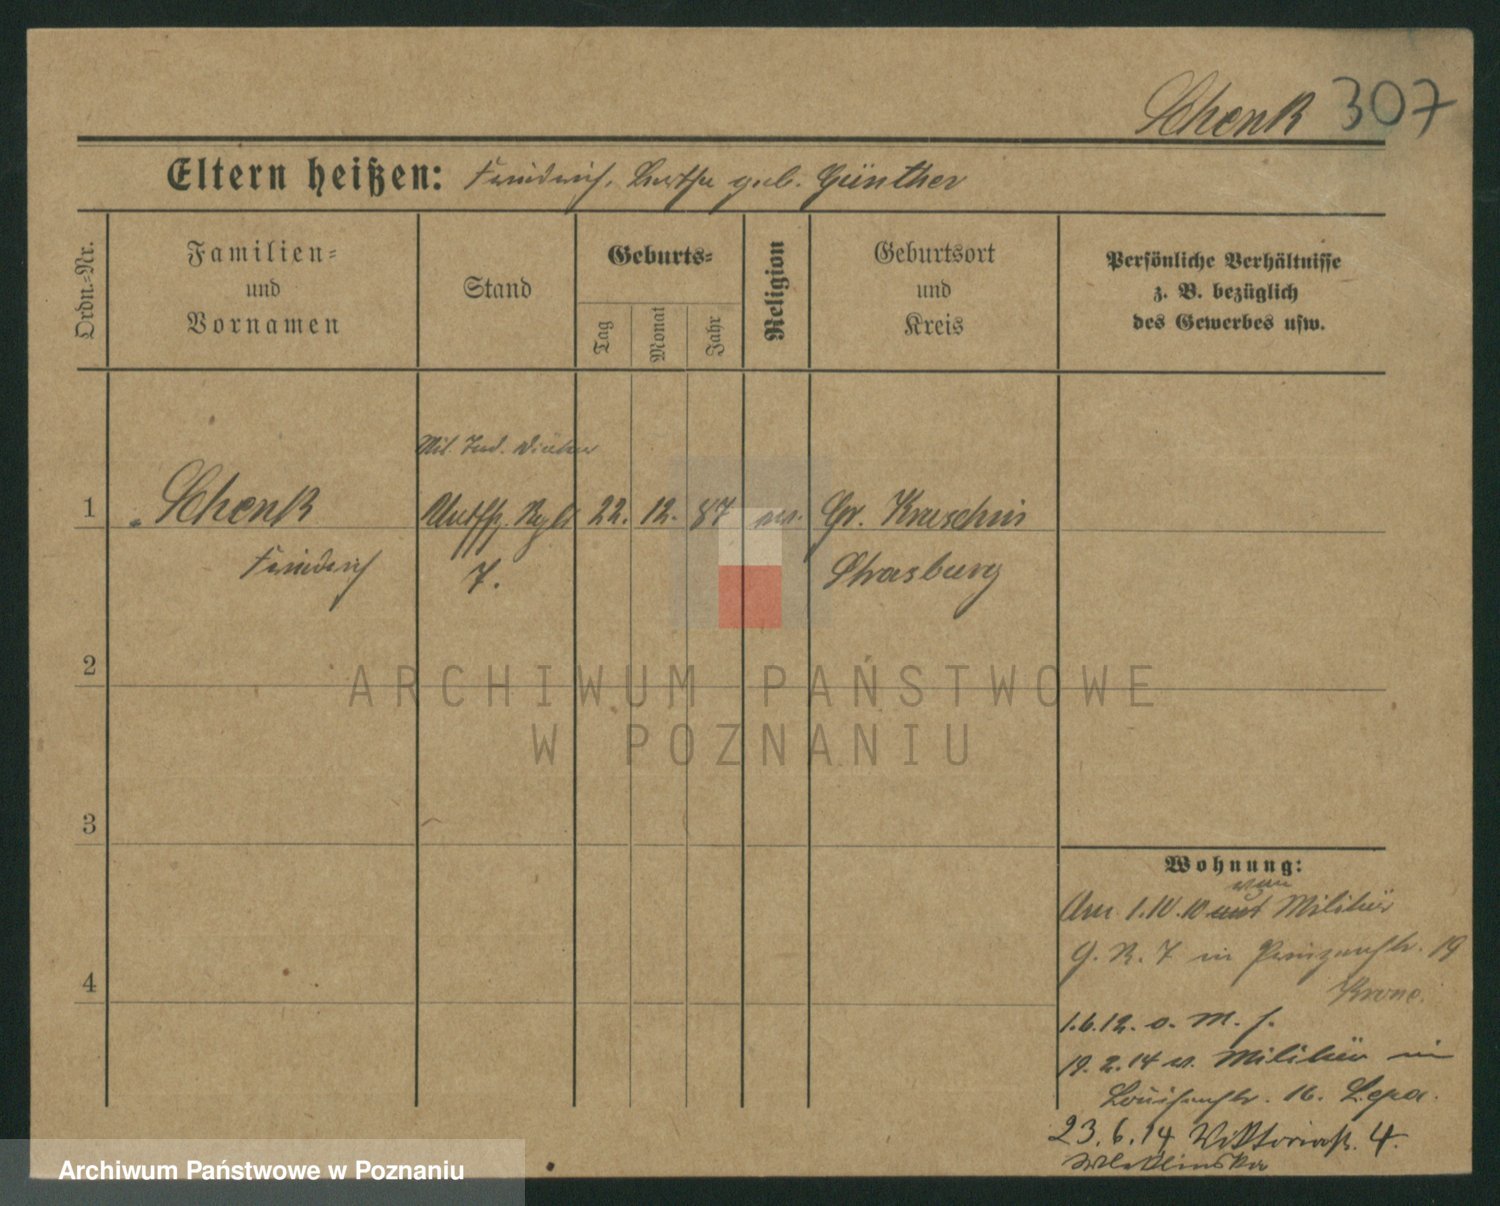 Schenk 307
Eltern heißen: Friedrich, Bertha geb. Günther
Ordn.-Nr.
Familien-
und
Vornamen
Stand
Geburts-
Tag
Monat
Jahr
Religion
Geburtsort
und
Kreis
Persönliche Verhältnisse
z. B. bezüglich
des Gewerbes usw.
Mil. Int.
1 Schenk 22. 12. 87 ev. Gr. Kruschin
Friedrich 7. Strasburg
2
3
4
Wohnung:
vom
Am 1.10.10 Militär
G. R. 7 in Prinzenstr. 19
Krone.
1.6.12. o. M. f.
19.2.14 v. Militär in
Louisenstr. 16.
23.6.14 Viktoriastr. 4.
ARCHIWUM PAŃSTWOWE
W POZNANIU
Archiwum Państwowe w Poznaniu